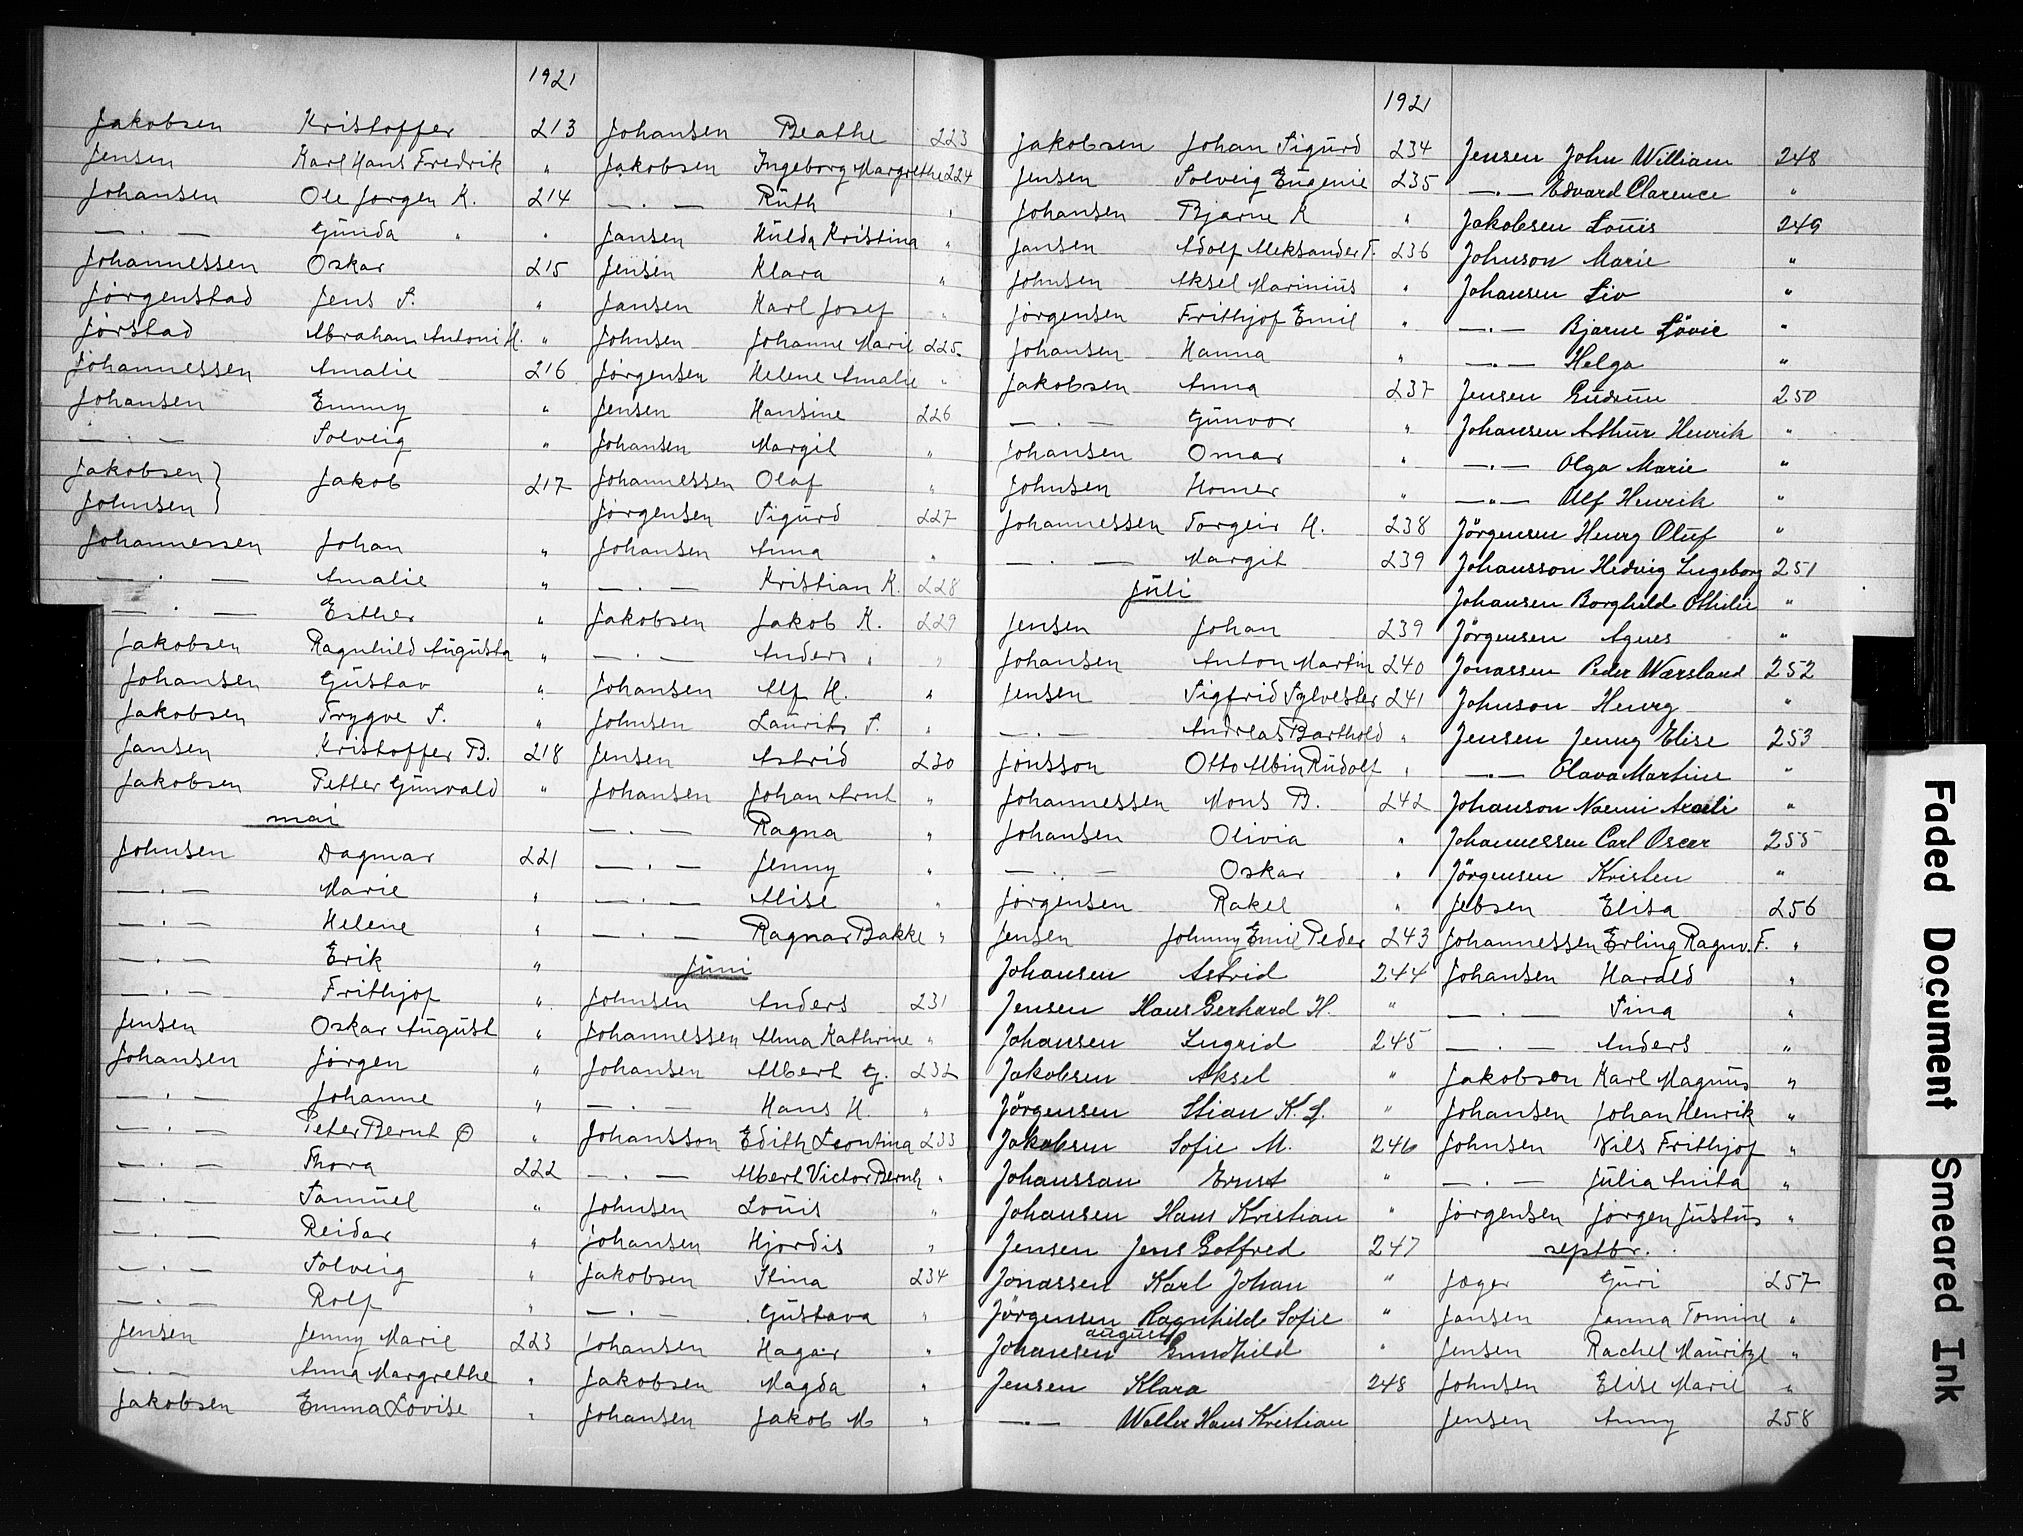 1921
Jakobsen Kristoffer 213
Jensen Karl Hans Fredrik "
Johansen Ole Jørgen K. 214
— . — Gunda " "
Johannessen Oskar 215
Jørgenstad Jens S. "
Jørstad Abraham Antoni H. "
Johannessen Amalie 216
Johansen Emmy "
— . — Solveig "
Jakobsen } Jakob 217
Johnsen }
Johannessen Johan "
— . — Amalie "
— . — Esther "
Jakobsen Ragnhild Augusta "
Johansen Gustav "
Jakobsen Trygve S. "
Jansen Kristoffer B. 218
Jakobsen Petter Gunvald "
mai
Johnsen Dagmar 221
— . — Marie "
— . — Helene "
— . — Erik "
— . — Frithjof "
Jensen Oskar August "
Johansen Jørgen "
— . — Johanne "
— . — Peter Bernt "
— . — Thora 222
— . — Samuel "
— . — Reidar "
— . — Solveig "
— . — Rolf "
Jensen Jenny Marie 223
— . — Anna Margrethe "
Jakobsen Emma Lovise "
Johansen Beathe 223
Jakobsen Ingeborg Margrethe 224
— . — Ruth "
Jansen Hulda Kristina "
Jensen Klara "
Jansen Karl Josef "
Johnsen Johanne Marie 225
Jørgensen Helene Amalie "
Jensen Hansine 226
Johansen Margit "
Johannessen Olaf "
Jørgensen Sigurd 227
Johansen Anna "
— . — Kristian K. 228
Jakobsen Jakob K. 229
— . — Anders "
Johansen Alf H. "
Johnsen Laurits S. "
Jensen Astrid 230
Johansen Johan Arnt "
— . — Ragna "
— . — Jenny "
— . — Alise "
— . — Ragnar Bakke "
juni
Johnsen Anders 231
Johannessen Alma Kathrine "
Johansen Albert G. 232
— . — Hans H. "
Johansson Edith Leontina 233
— . — Albert Victor Bernh "
Johnsen Louis "
Johansen Hjordis "
Jakobsen Stina 234
— . — Gustava "
Johansen Hagar "
Jakobsen Magda "
Johansen Jakob M "
1921
Jakobsen Johan Sigurd 234
Jensen Solveig Eugenie 235
Johansen Bjarne K "
Jansen Adolf Aleksander F. 236
Johnsen Aksel Marinius "
Jørgensen Frithjof Emil "
Johansen Hanna "
Jakobsen Anna 237
— . — Gunvor "
Johansen Omar "
Johnsen Homer "
Johannessen Torgeir H. 238
— . — Margit 239
juli
Jensen Johan 239
Johansen Anton Martin 240
Jensen Sigfrid Sylvester 241
— . — Andreas Barthold "
Jonsson Otto Albin Rudolf "
Johannessen Mons B. 242
Johansen Olivia "
— . — Oskar "
Jørgensen Rakel "
Jensen Johnny Emil Peder 243
Johansen Astrid 244
Jensen Hans Gerhard H. "
Johansen Ingrid 245
Jakobsen Aksel "
Jörgensen Stian K. S. "
Jakobsen Sofie M. 246
Johanssan Ernst "
Johansen Hans Kristian "
Jensen Jens Gotfred 247
Jonassen Karl Johan "
Jörgensen Ragnhild Sofie "
august
Johansen Gundhild "
Jensen Klara 248
— . — Walter Hans Kristian
Jensen John William 248
— . — Edvard Clarence "
Jakobsen Louis 249
Johnson Marie "
Johansen Liv "
— . — Bjarne Lövie "
— . — Helga "
Jensen Gudrun 250
Johansen Arthur Henrik "
— . — Olga Marie "
— . — Alf Henrik "
Jörgensen Henry Oluf "
Johansson Hedvig Ingeborg 251
Johansen Borghild Othilie "
Jörgensen Agnes "
Jonassen Peder Wærsland 252
Johnson Henry "
Jensen Jenny Elise 253
— . — Olava Martine "
Johanson Naemi Axeli "
Johannessen Carl Oscar 255
Jörgensen Kristen "
Jebsen Elisa 256
Johannessen Erling Ragnv. F. "
Johansen Harald "
— . — Tina "
— . — Anders "
Jakobson Karl Magnus "
Johansen Johan Henrik "
Johnsen Nils Frithjof "
— . — Julia Anita "
Jørgensen Jørgen Justus "
septbr.
Jæger Guri 257
Jansen Janna Tomine "
Jensen Rachel Mauritze "
Johnsen Elise Marie "
Jensen Anny 258
Faded Document
Smeared Ink